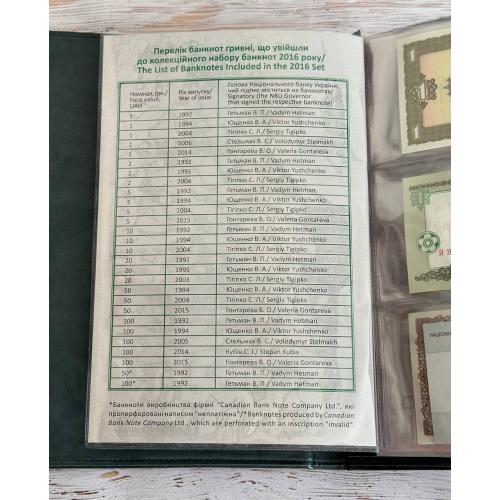 Перелік банкнот гривні, що увійшли
до колекційного набору банкнот 2016 року/
The List of Banknotes Included in the 2016 Set
Номінал, грн./ Face value, UAH Рік випуску/ Year of issue Голова Національного банку України, чий підпис міститься на банкнотах/ Signatory (the NBU Governor that signed the respective banknote)
1 1992 Гетьман В. П./ Vadym Hetman
1 1994 Ющенко В. А./ Viktor Yushchenko
1 2004 Тігіпко С. Л./ Sergiy Tigipko
1 2006 Стельмах В. С./ Volodymyr Stelmakh
1 2014 Гонтарева В. О./ Valeria Gontareva
2 1992 Гетьман В. П./ Vadym Hetman
2 1995 Ющенко В. А./ Viktor Yushchenko
2 2004 Тігіпко С. Л./ Sergiy Tigipko
5 1992 Гетьман В. П./ Vadym Hetman
5 1994 Ющенко В. А./ Viktor Yushchenko
5 2004 Тігіпко С. Л./ Sergiy Tigipko
5 2015 Гонтарева В. О./ Valeria Gontareva
10 1992 Гетьман В. П./ Vadym Hetman
10 1994 Ющенко В. А./ Viktor Yushchenko
10 2004 Тігіпко С. Л./ Sergiy Tigipko
20 1992 Гетьман В. П./ Vadym Hetman
20 1995 Ющенко В. А./ Viktor Yushchenko
20 2003 Тігіпко С. Л./ Sergiy Tigipko
50 1994 Ющенко В. А./ Viktor Yushchenko
50 2004 Тігіпко С. Л./ Sergiy Tigipko
50 2015 Гонтарева В. О./ Valeria Gontareva
100 1992 Гетьман В. П./ Vadym Hetman
100 1994 Ющенко В. А./ Viktor Yushchenko
100 2005 Стельмах В. С./ Volodymyr Stelmakh
100 2014 Кубів С. І./ Stepan Kubiv
100 2015 Гонтарева В. О./ Valeria Gontareva
50* 1992 Гетьман В. П./ Vadym Hetman
100* 1992 Гетьман В. П./ Vadym Hetman
*Банкноти виробництва фірми "Canadian Bank Note Company Ltd.", які
проперфоровані написом "неплатіжна"/*Banknotes produced by Canadian
Bank Note Company Ltd., which are perforated with an inscription "invalid".
1
НАЦІОНАЛ